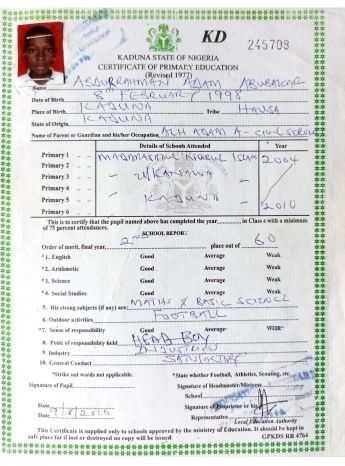 KD 245703
KADUNA STATE OF NIGERIA
CERTIFICATE OF PRIMARY EDUCATION
(Revised 1977)
Name ABDURRAHMAN ADAM ABUBAKAR
Date of Birth 8 FEBRUARY 1998
Place of Birth KADUNA Tribe HAUSA
State of Origin KADUNA
Name of Parent or Guardian and his/her Occupation ALH ADAM A- CIVIL SERVANT
Details of Schools Attended Year
Primary 1 MADARASATUL ISLAM 2004
Primary 2
Primary 3 " U/KANAWA
Primary 4
Primary 5 " KADUNA
Primary 6 2010
This is to certify that the pupil named above has completed the year, in Class 6 with a minimum
of 75 percent attendances.
SCHOOL REPORT
Order of merit, final year, 2nd place out of 60
*1. English Good Average Weak
*2. Arithmetic Good Average Weak
*3. Science Good Average Weak
*4. Social Studies Good Average Weak
5. His strong subjects (if any) are: MATHS & BASIC SCIENCE
6. Outdoor activities FOOTBALL
*7. Sense of responsibility Good Average Weak
8. Posts of responsibility held HEAD BOY
9. Industry
10. General Conduct SATISFACTORY
*Strike out words not applicable. *State whether Football, Athletics, Scouting, etc.
Signature of Pupil Signature of Headmaster/Mistress
School
Signature of Proprietor or his
Date Representative
Date Local Education Authority
This Certificate is supplied only to schools approved by the ministry of Education. It should be kept in
safe place for if lost or destroyed no copy will be issued. GPKDS RR 4764